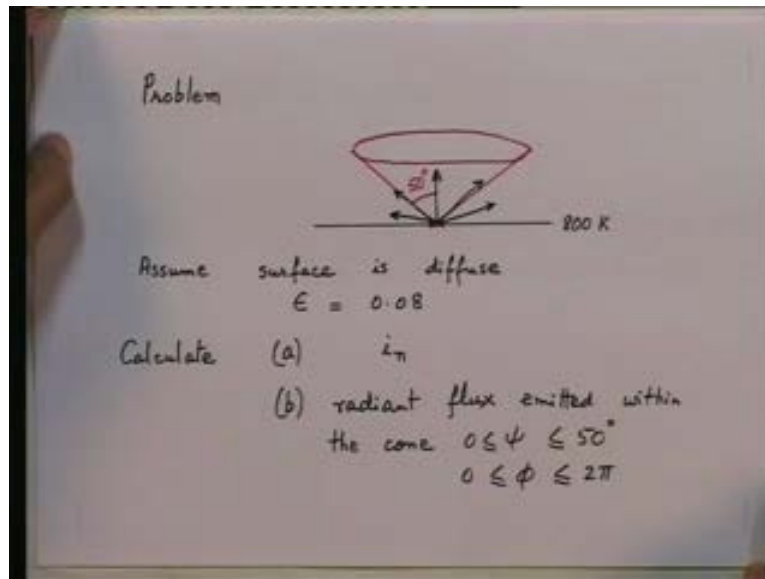 Problem
50°
800 K
Assume surface is diffuse
ϵ = 0.08
Calculate (a) iₙ
(b) radiant flux emitted within
the cone 0 ≤ ψ ≤ 50°
0 ≤ ϕ ≤ 2π